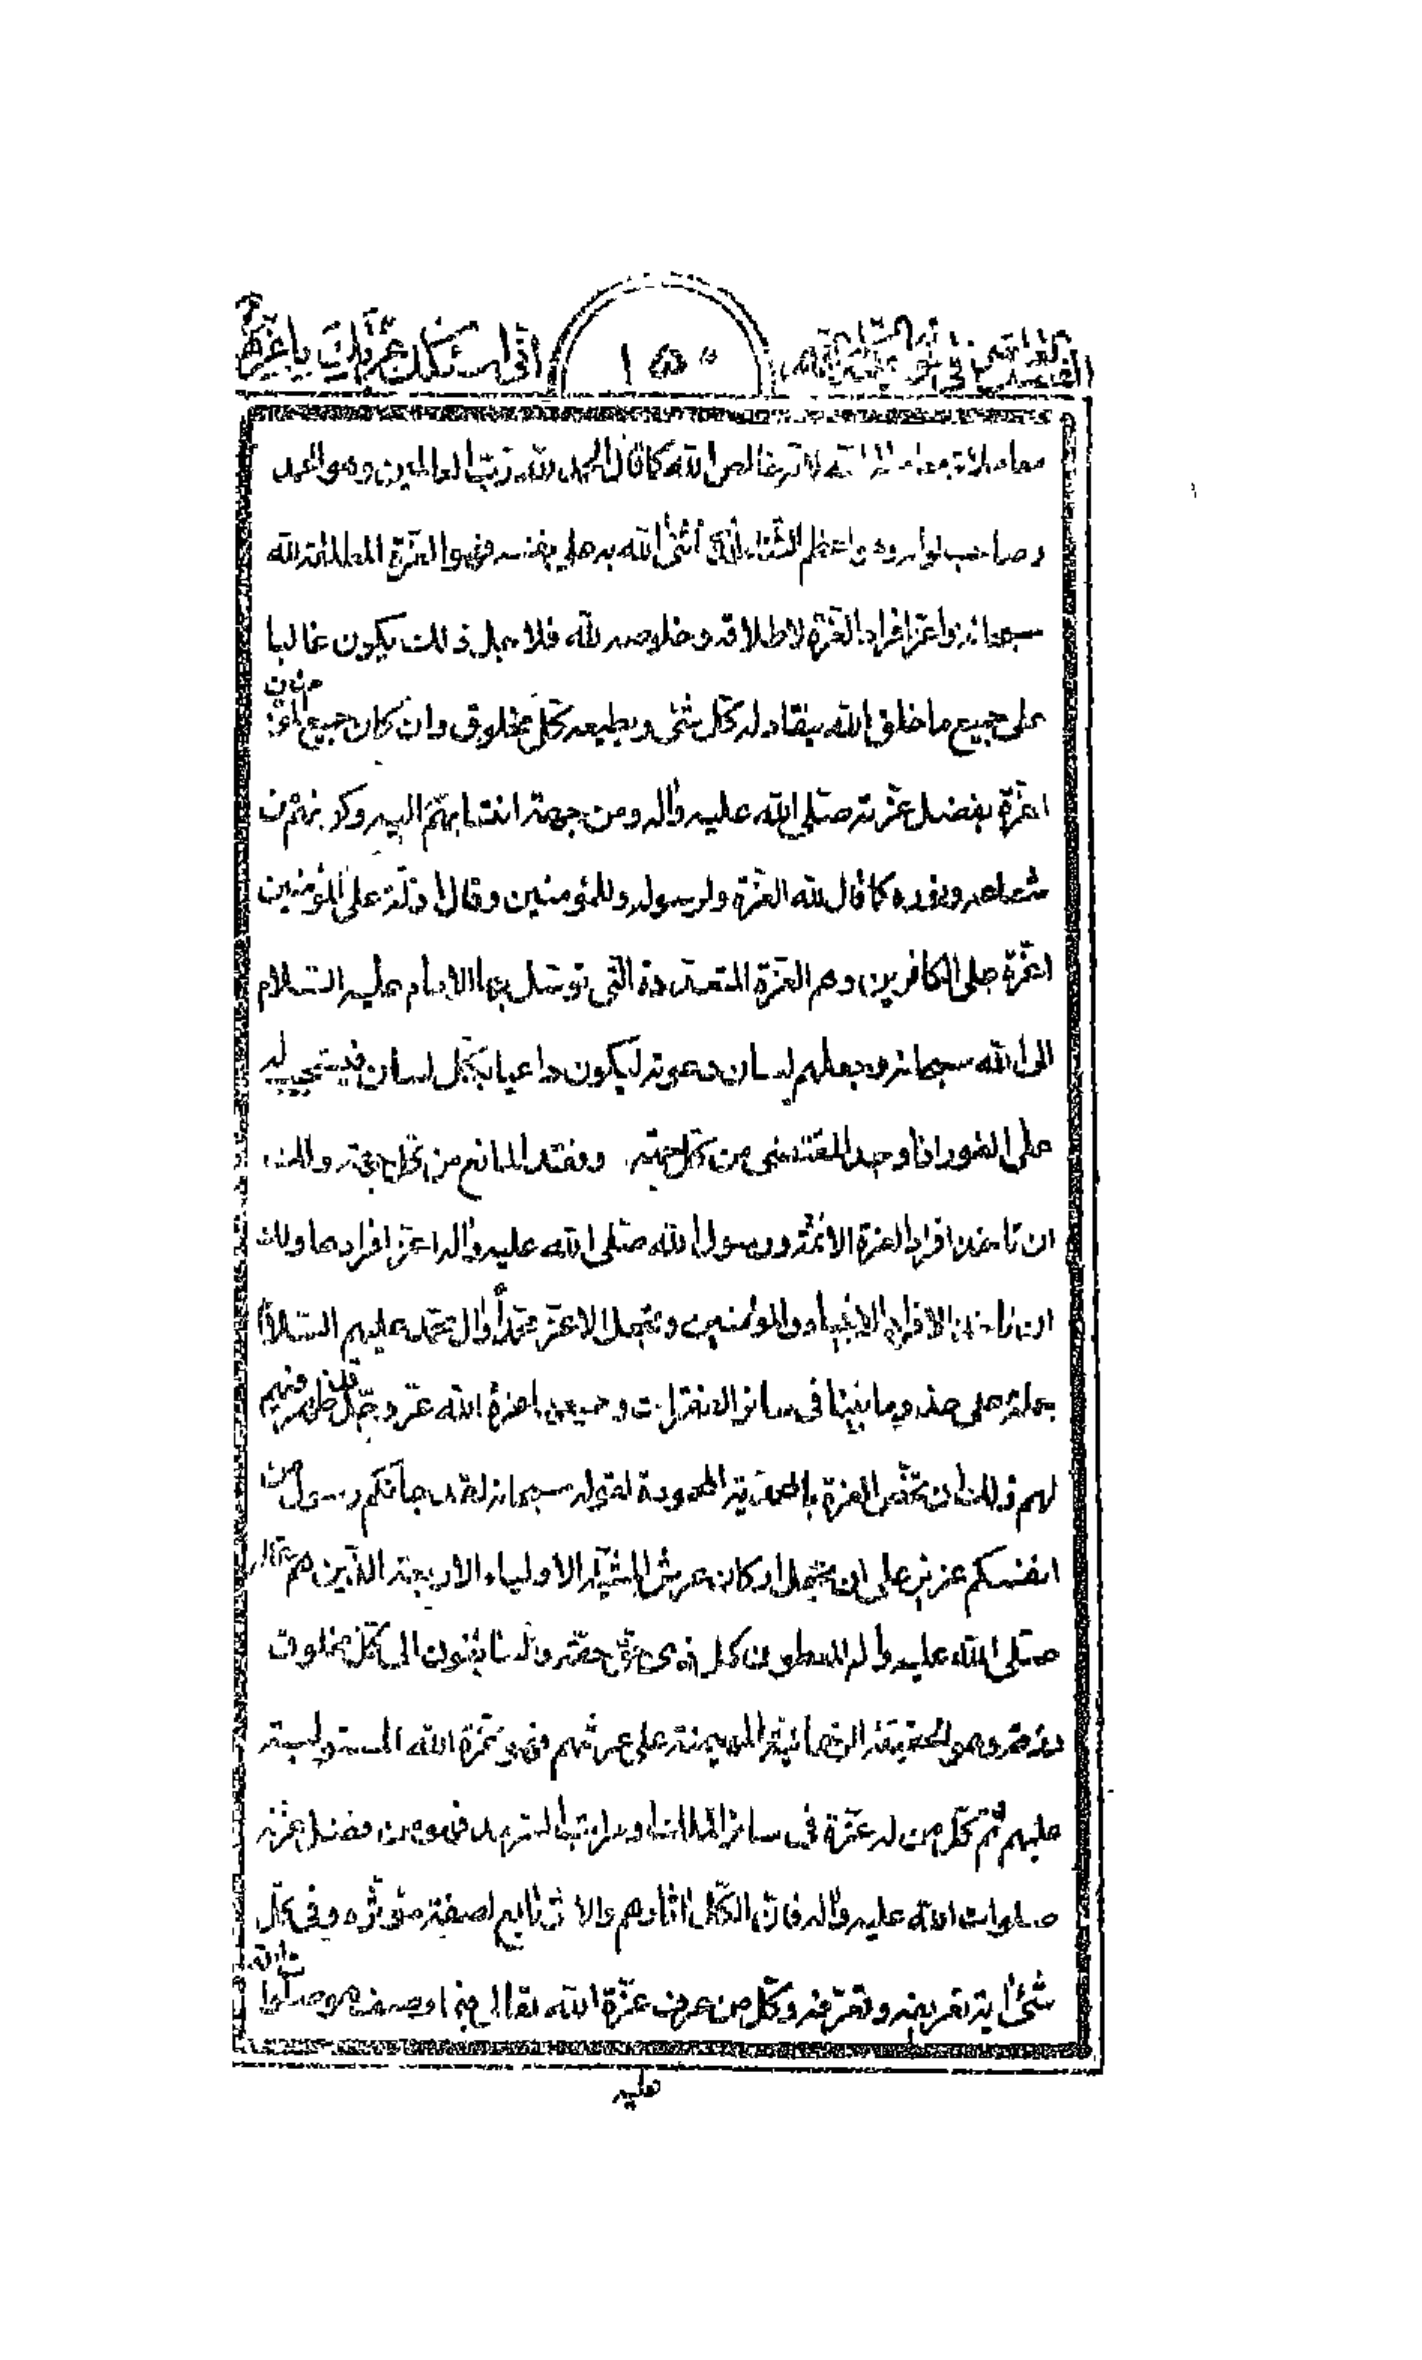 ١٥٠
انی اسئلك من عزتك باعزها
لانه خالص الله كما قال الحمد لله رب العالمين وهو الحمد
وصاحب لوائه وهو اعظم الثناء الذی اثنی الله به علی نفسه فهو العزة المطلقة لله
سبحانه واعز افراد العزة لاطلاقه وخلوصه لله فلاجل ذلك يكون غالبا
علی جميع ما خلق الله ينقاد له كل شئ ويطيعه كل مخلوق وان كان جميع الاعزة من
اعزة بفضل عزته صلی الله عليه وآله ومن جهة انتسابهم اليه وكونهم من
شعاعه ونوره كما قال لله العزة ولرسوله وللمؤمنين وقال اذلة علی المؤمنين
اعزة علی الكافرين وهم العزة المتعددة التی توسل بها الامام عليه السلام
الی الله سبحانه وجعلهم لسان دعوته ليكون داعيا بكل لسان فيستجيب له
علی الفور اذا وجد المقتضی من كل جهة وفقد المانع من كل جهة ولك
ان تاخذ افراد العزة الائمة ورسول الله صلی الله عليه وآله اعز افرادها ولك
ان تاخذ الافراد الانبياء والمؤمنين وتجعل الاعز محمدا وآل محمد عليهم السلام
جملة علی حذو ما بينا فی سائر الفقرات وجميعهم اعزة الله عز وجل قد ظهر فيهم
لهم ولك ان تخص العزة بالمحمدية المحمودة لقوله سبحانه لقد جاءكم رسول من
انفسكم عزيز علی ان تجعل اركان عرش المشية الاولياء الاربعة الذين هم آله
صلی الله عليه وآله المعطون كل ذی حق حقه والسائقون الی كل مخلوق
رزقه وهو الحقيقة الرحمانية المهيمنة علی عرشهم فهو عزة الله المستولية
عليهم ثم كل من له عزة فی سائر الممالك ومراتب التوحيد فهو من فضل عزته
صلوات الله عليه وآله فان الكل آثارهم والاثر تابع لصفة مؤثره وفی كل
شئ آية تعريفه وتعرفه وكل من عرف عزة الله تعالی فبما وصفه هو صلوات الله
عليه